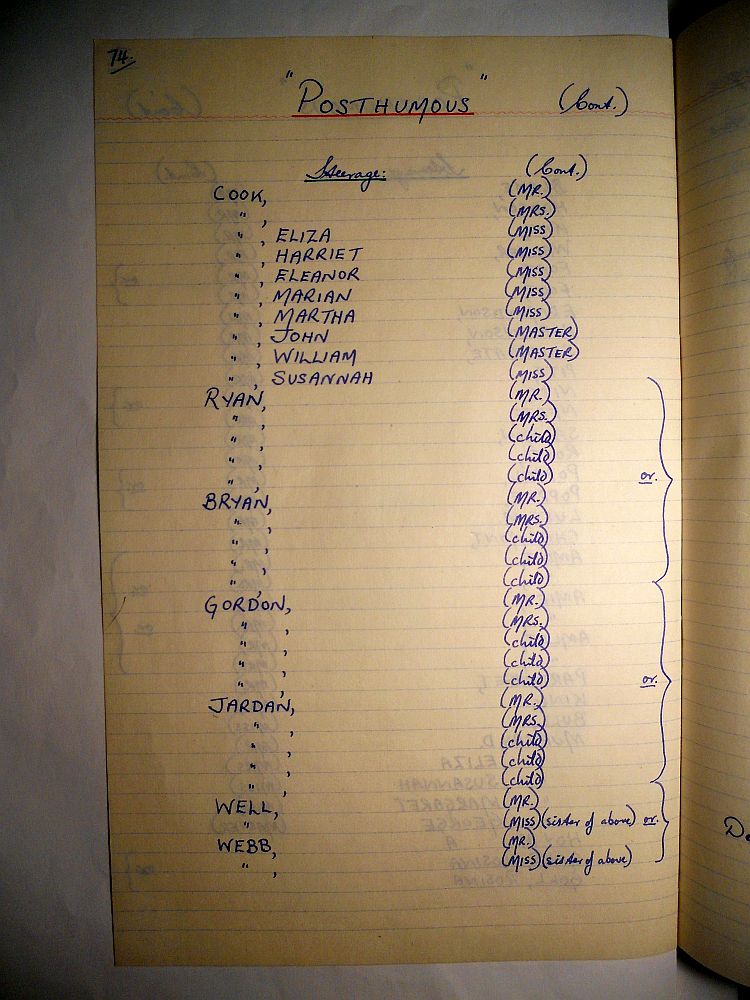 74.
"POSTHUMOUS" (Cont.)
Steerage: (Cont.)
COOK, (MR.)
" , (MRS.)
" , ELIZA (MISS)
" , HARRIET (MISS)
" , ELEANOR (MISS)
" , MARIAN (MISS)
" , MARTHA (MISS)
" , JOHN (MASTER)
" , WILLIAM (MASTER)
" , SUSANNAH (MISS)
RYAN, (MR.)
" , (MRS.)
" , (child)
" , (child)
" , (child) or.
BRYAN, (MR.)
" , (MRS.)
" , (child)
" , (child)
" , (child)
GORDON, (MR.)
" , (MRS.)
" , (child)
" , (child)
" , (child) or.
JARDAN, (MR.)
" , (MRS.)
" , (child)
" , (child)
" , (child)
WELL, (MR.)
" , (MISS) (sister of above) or.
WEBB, (MR.)
" , (MISS) (sister of above)